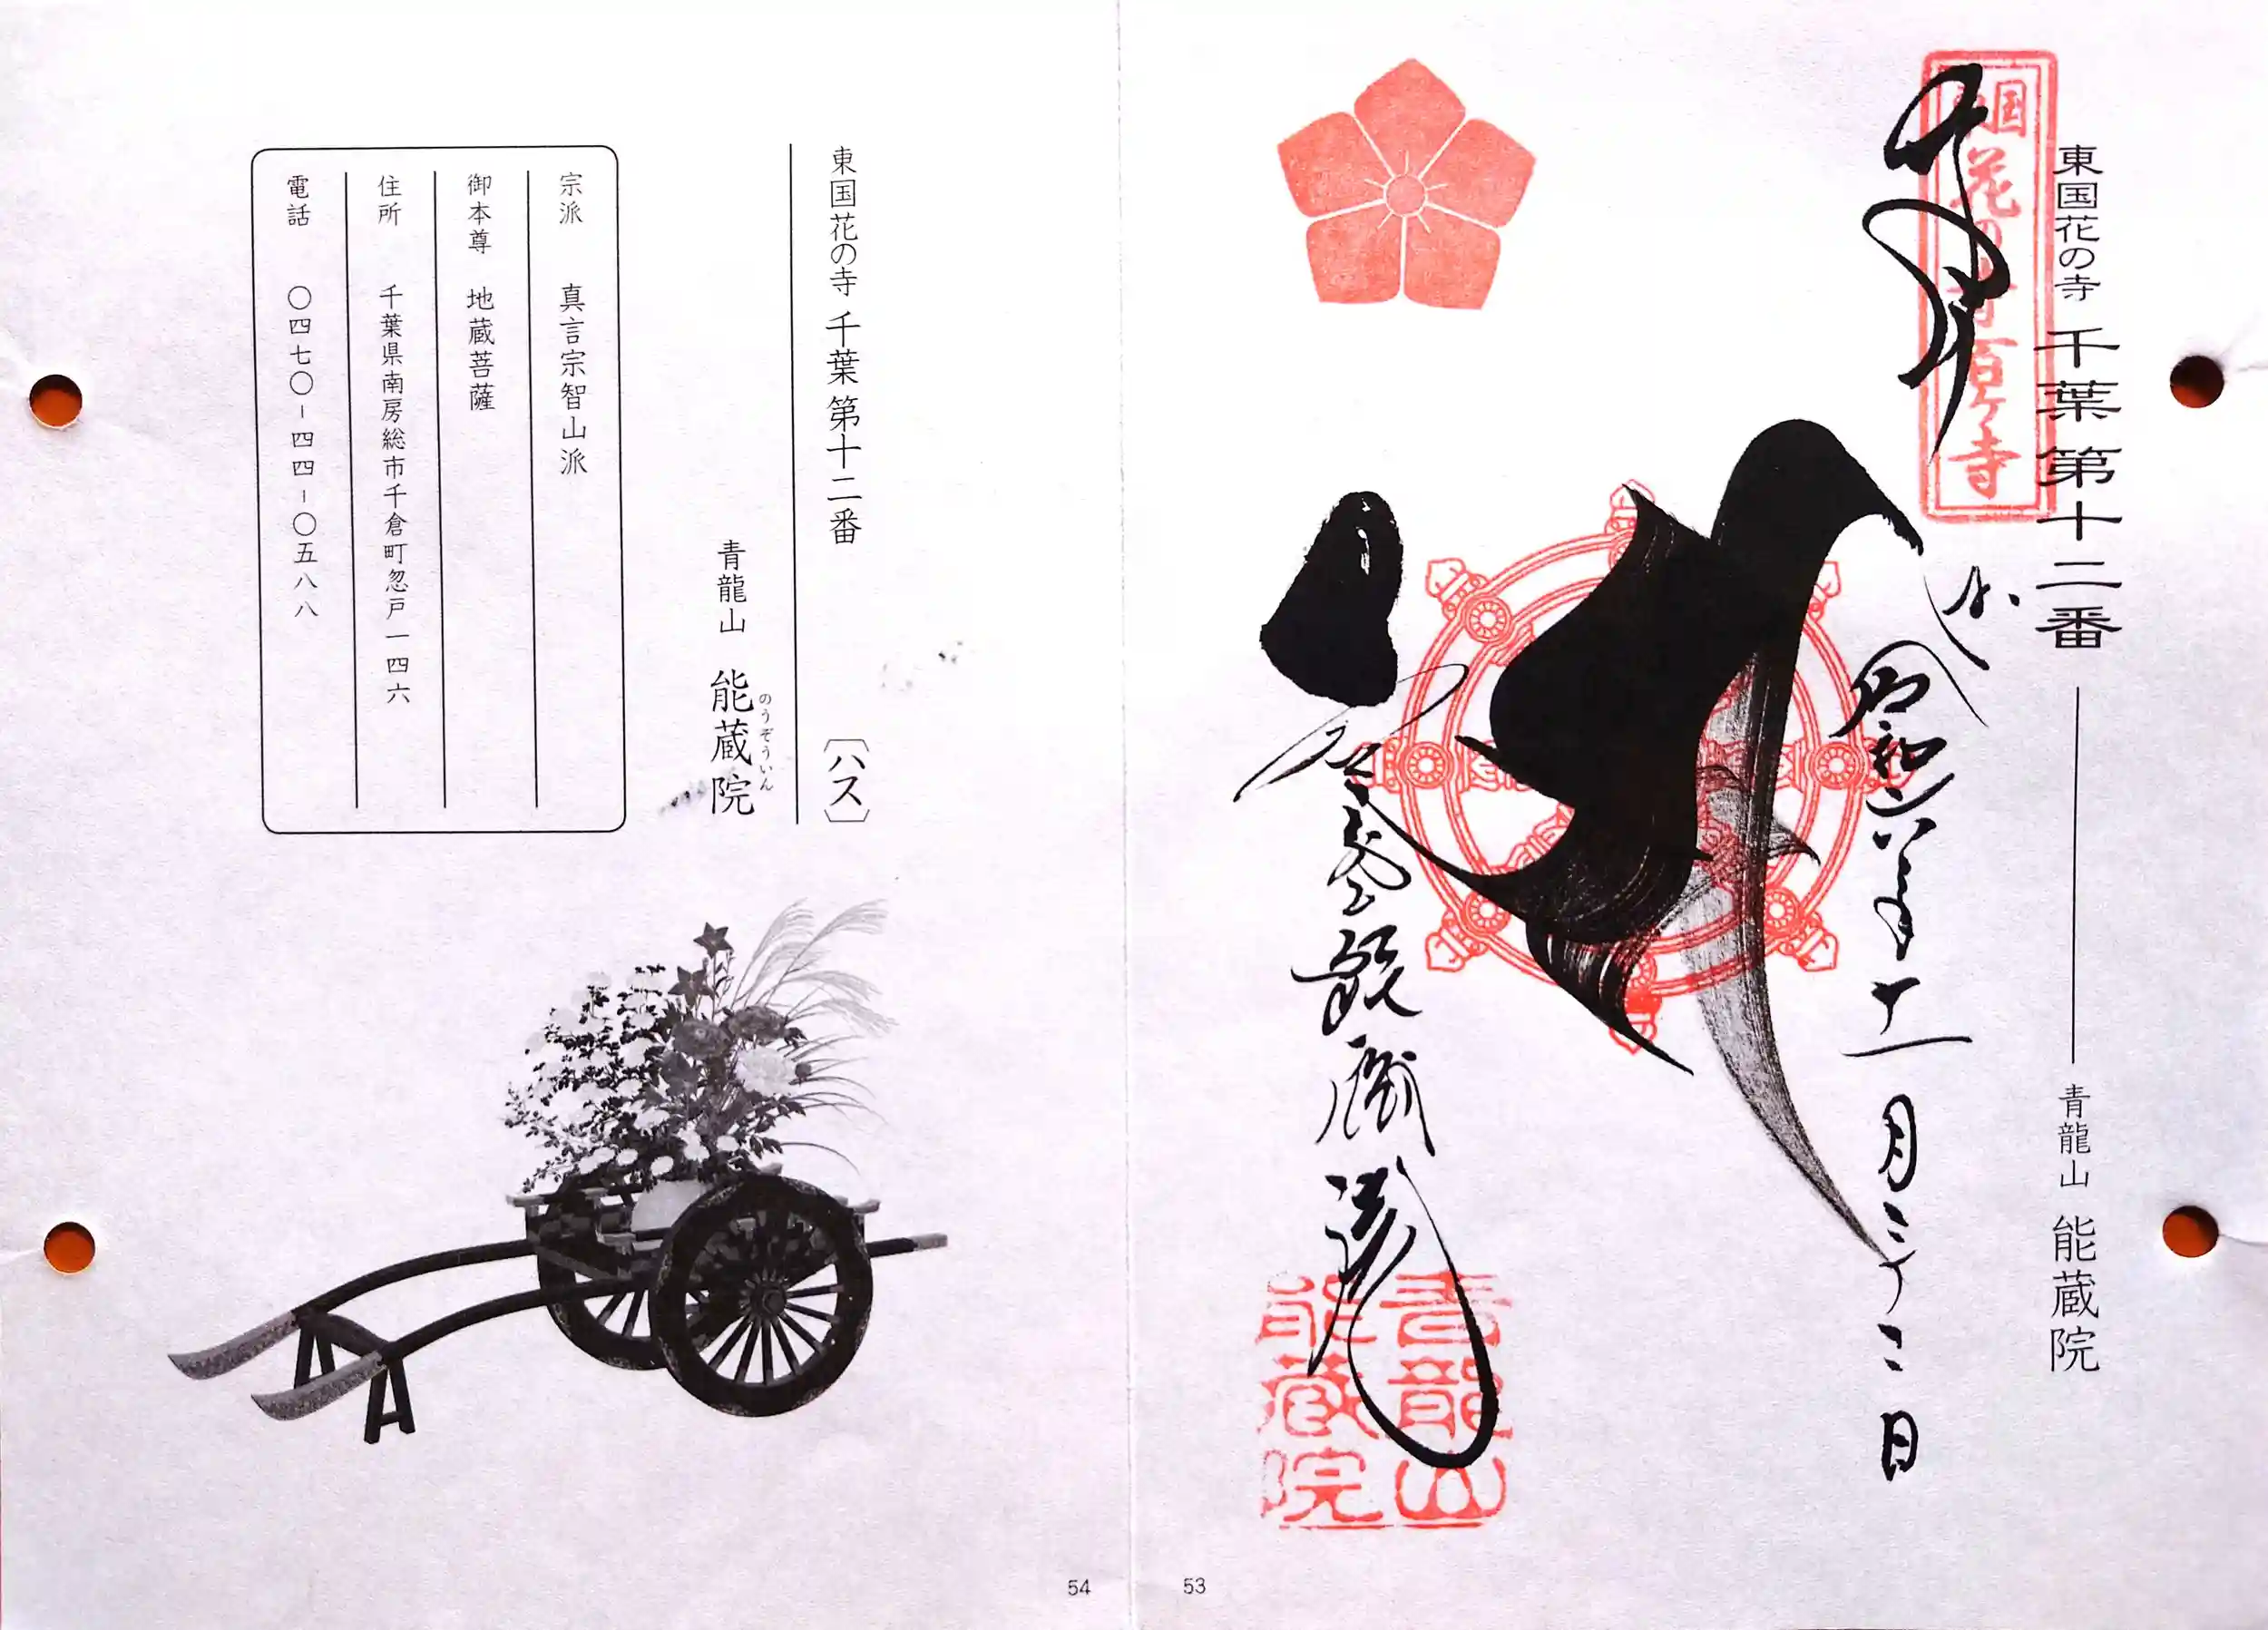 東国花の寺 千葉第十二番 青龍山 能蔵院
国花の寺百ヶ寺
奉拝
令和六年十一月三十二日
能蔵院
青龍山
能蔵院
53
東国花の寺 千葉第十二番 〔ハス〕
青龍山 能蔵院
のうぞういん
宗派 真言宗智山派
御本尊 地蔵菩薩
住所 千葉県南房総市千倉町忽戸一四六
電話 〇四七〇-四四-〇五八八
54